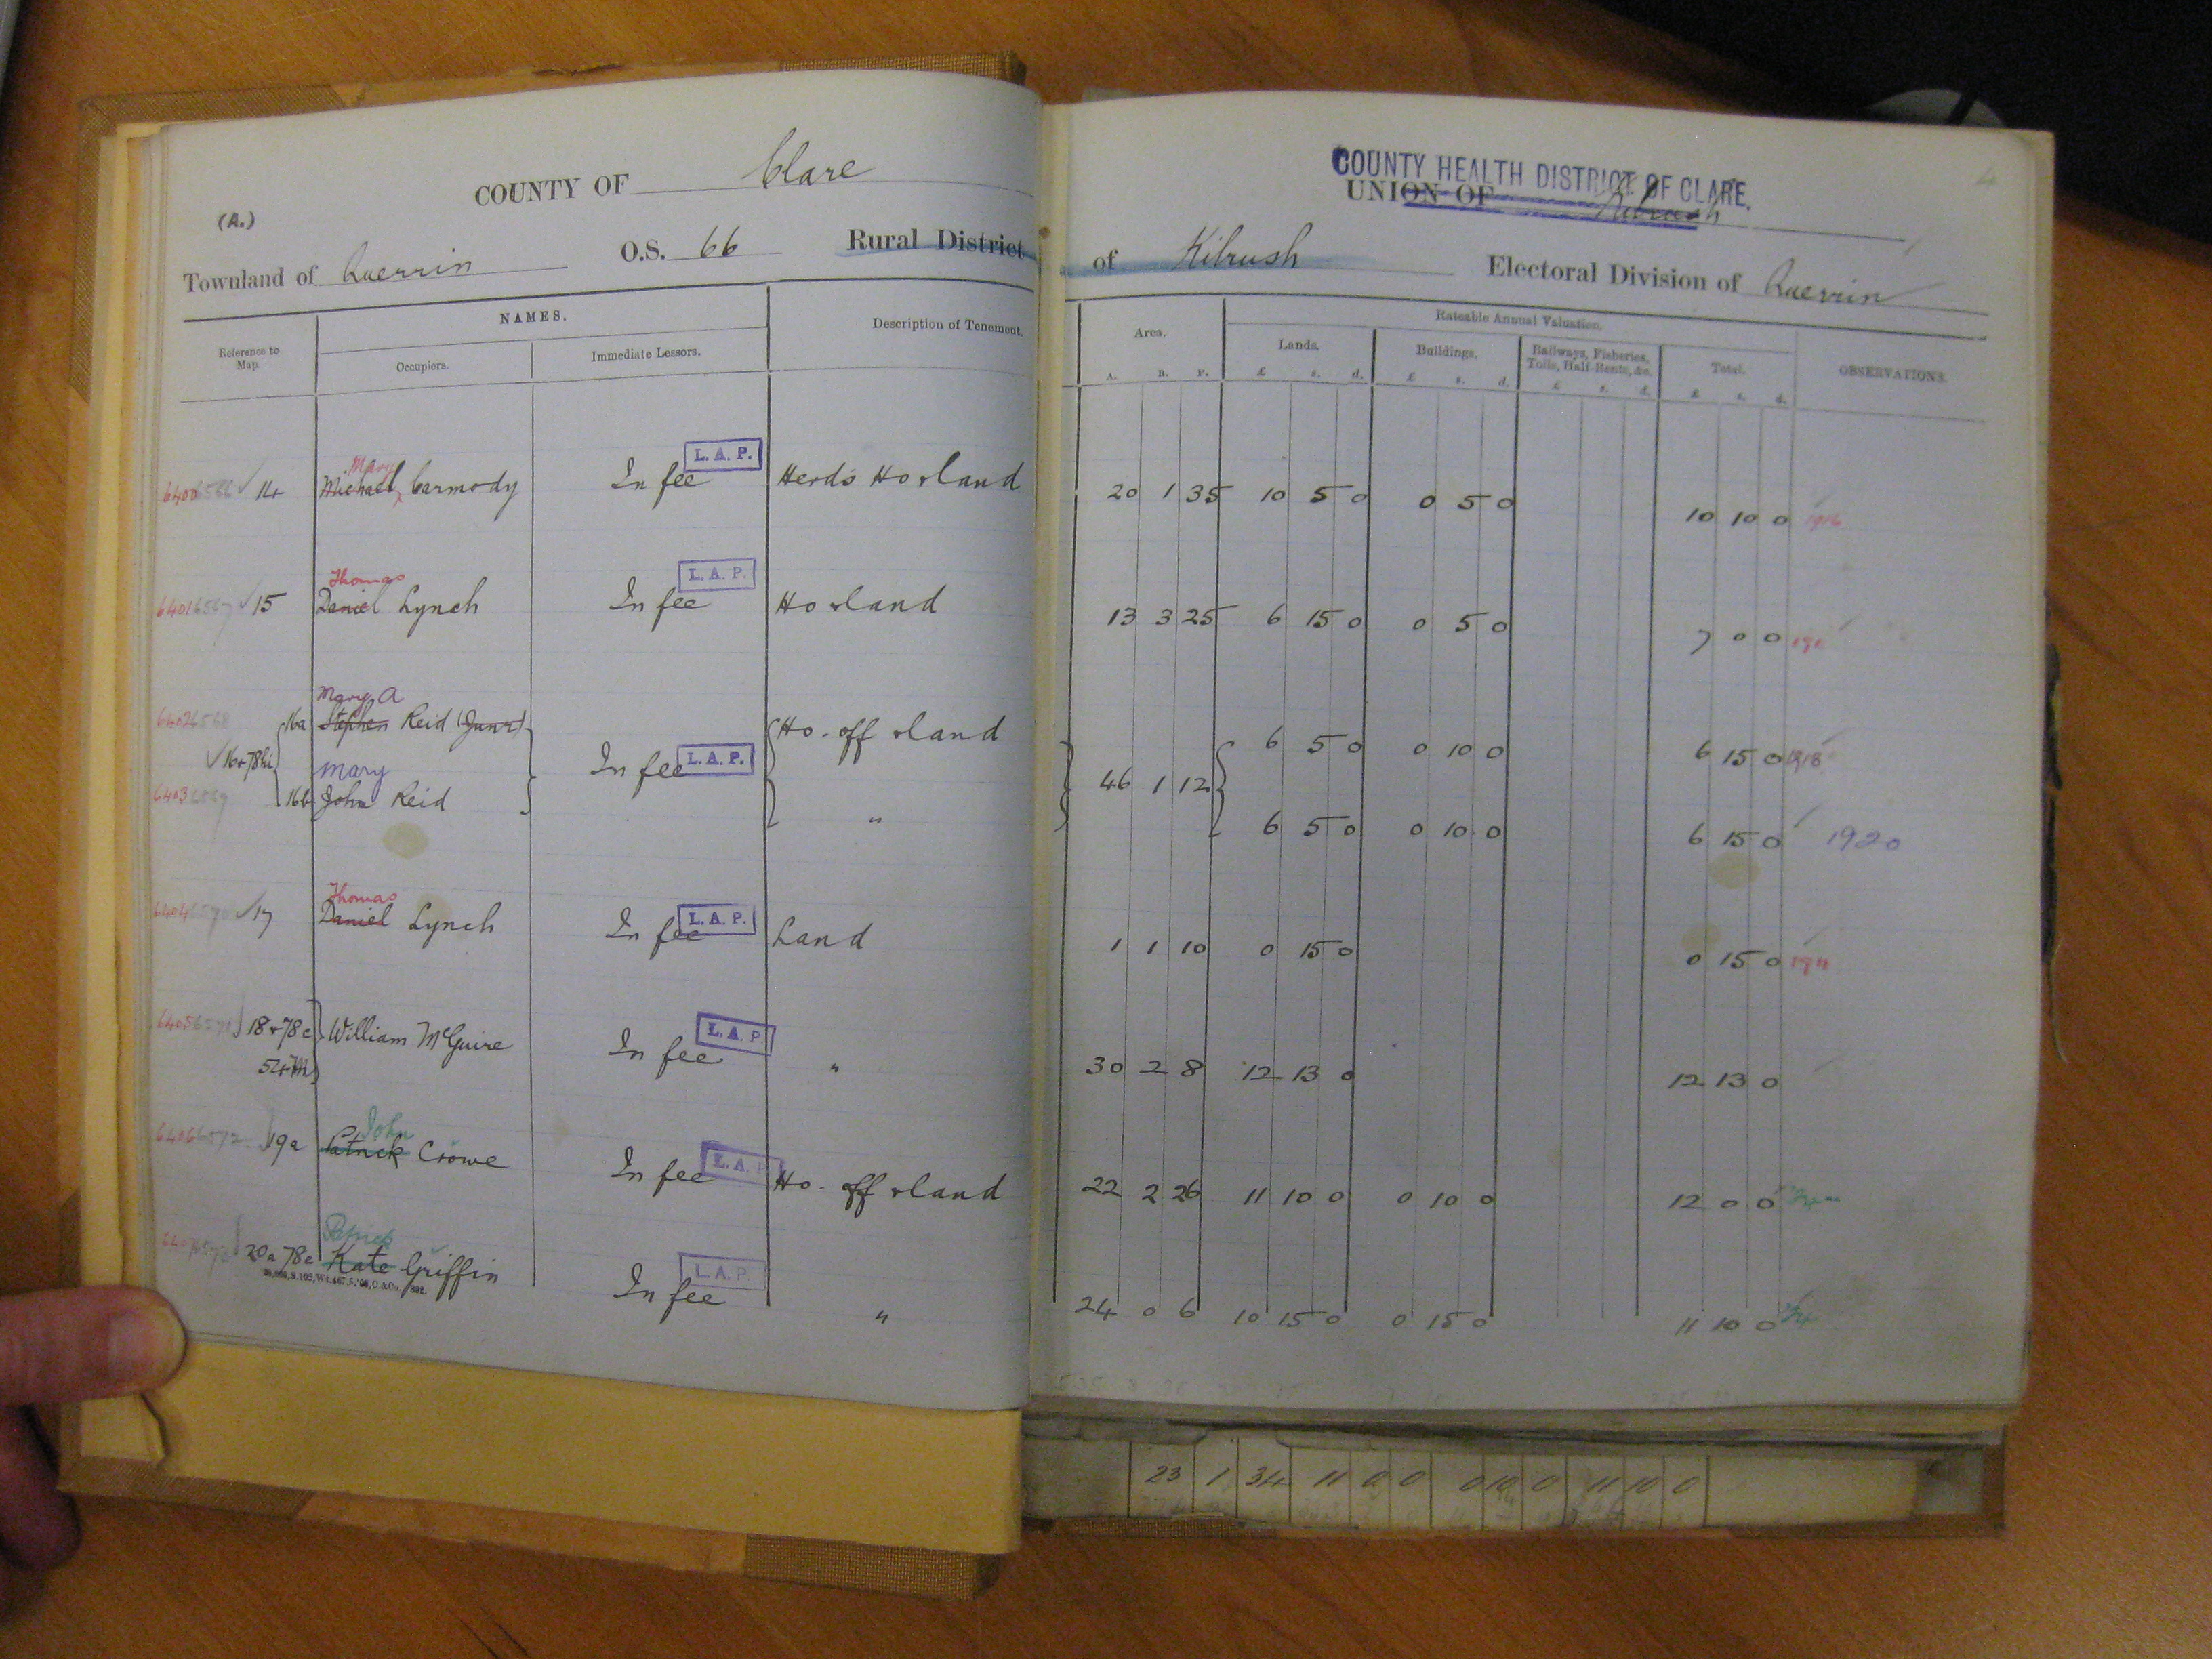 COUNTY OF Clare
(A.)
Townland of Querrin O.S. 66 Rural District
Reference to Map.
NAMES.
Occupiers.
Immediate Lessors.
Description of Tenement.
14 Michael Mary Carmody In fee L. A. P. Herd's Ho & land
Thomas
15 Daniel Lynch In fee L. A. P. Ho & land
Mary A
16a Stephen Reid (Junr) Ho. off & land
16 & 78hi In fee L. A. P.
Mary
16b John Reid "
Thomas
17 Daniel Lynch In fee L. A. P. Land
18 & 78c William McGuire In fee L. A. P. "
John
19a Patrick Crowe In fee L. A. P. Ho. off & land
Patrick
20a 78e Kate Griffin In fee L. A. P. "
4
COUNTY HEALTH DISTRICT OF CLARE.
UNION OF Kilrush
of Kilrush Electoral Division of Querrin
Area.
A. R. P.
Rateable Annual Valuation.
Lands.
£ s. d.
Buildings.
£ s. d.
Railways, Fisheries, Tolls, Half-Rents, &c.
£ s. d.
Total.
£ s. d.
OBSERVATIONS.
20 1 35 10 5 0 0 5 0 10 10 0 1916
13 3 25 6 15 0 0 5 0 7 0 0
6 5 0 0 10 0 6 15 0 1918
46 1 12
6 5 0 0 10 0 6 15 0 1920
1 1 10 0 15 0 0 15 0
30 2 8 12 13 0 12 13 0
22 2 26 11 10 0 0 10 0 12 0 0
24 0 6 10 15 0 0 15 0 11 10 0
23 1 34 11 0 0 0 10 0 11 10 0